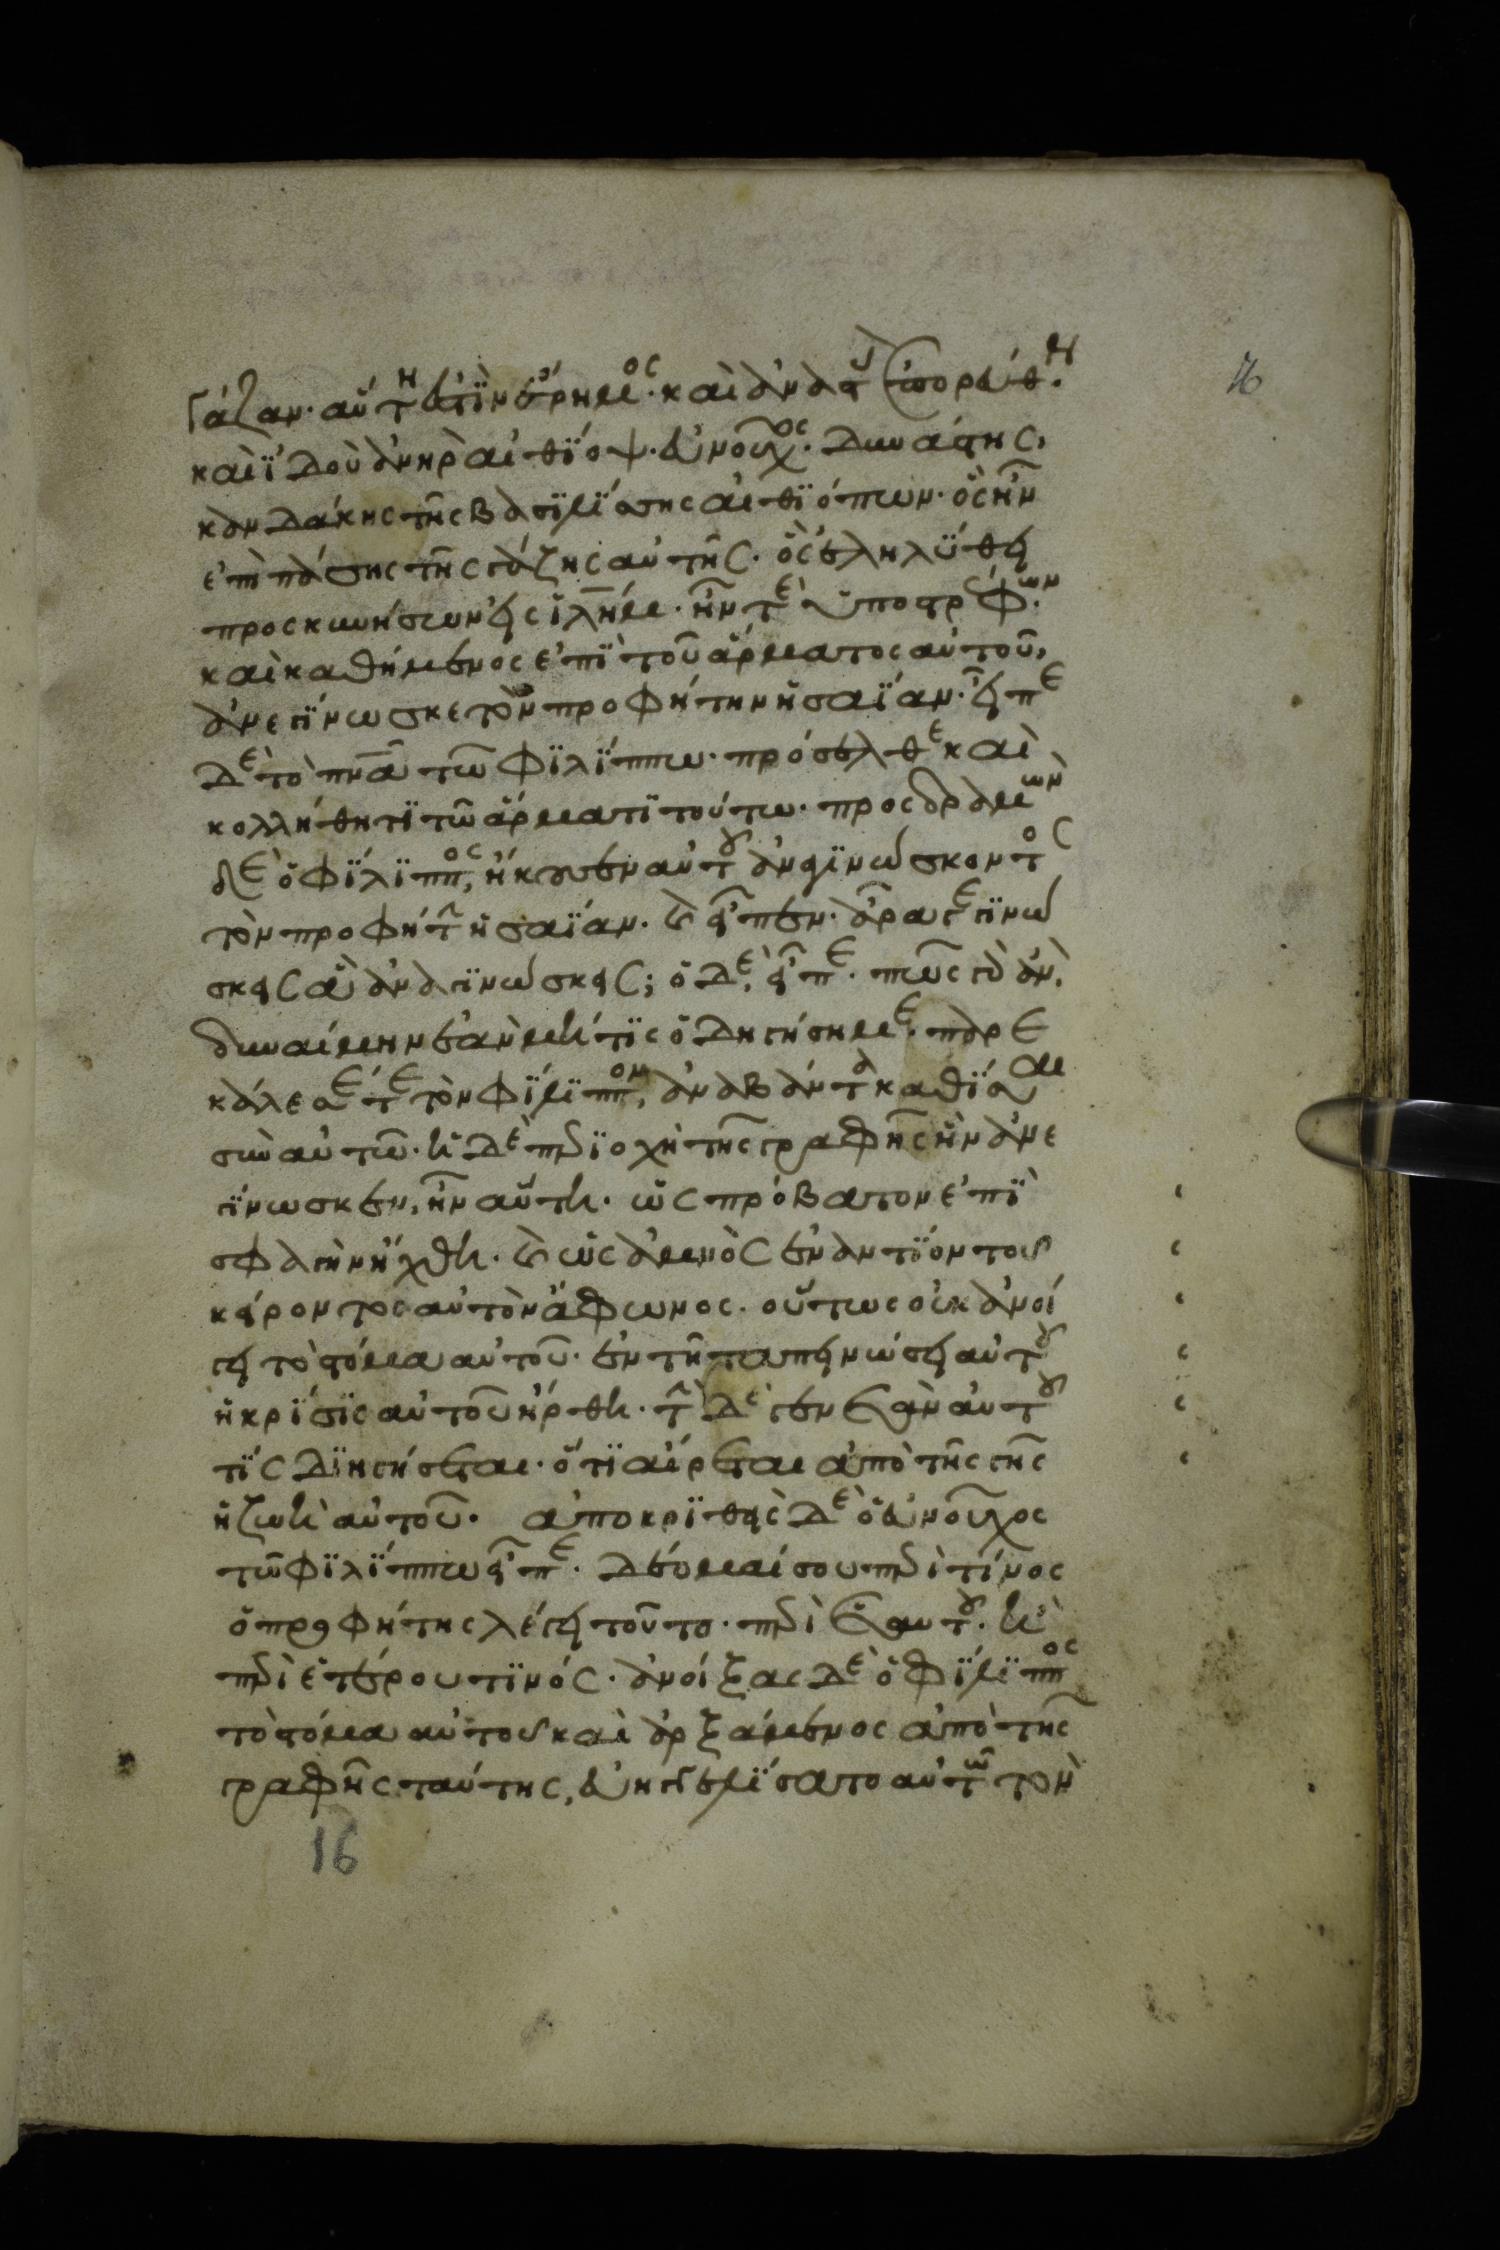 Γάζαν· αὕτη ἐστὶν ἔρημος· καὶ ἀναστὰς ἐπορεύθη·
16
καὶ ἰδοὺ ἀνὴρ αἰθίοψ· εὐνοῦχος· δυνάστης,
κανδάκης τῆς βασιλίσσης αἰθιόπων· ὃς ἦν
ἐπὶ πάσης τῆς γάζης αὐτῆς· ὃς ἐληλύθει
προσκυνήσων εἰς ἰλήμ· ἦν τὲ ὑποστρέφων·
καὶ καθήμενος ἐπὶ τοῦ ἅρματος αὐτοῦ,
ἀνεγίνωσκε τὸν προφήτην ἠσαΐαν· εἶπε
δὲ τὸ πνα τῶ φιλίππω· πρόσελθε καὶ
κολλήθητι τῶ ἅρματι τούτω· προσδραμὼν
δὲ ὁ φίλιππος, ἤκουσεν αὐτοῦ ἀναγινώσκοντος
τὸν προφήτην ἠσαΐαν· καὶ εἶπεν· ἆρα γε γινώ
σκεις ἃ ἀναγινώσκεις; ὁ δὲ, εἶπε· πῶς γὰρ ἂν,
δυναίμην ἐὰν μή τις ὁδηγήση με· παρε
κάλεσέ τε τὸν φίλιππον, ἀναβάντα καθίσαι
σὺν αὐτῶ· ἡ δὲ περιοχὴ τῆς γραφῆς ἣν ἀνε
γίνωσκεν, ἦν αὕτη· ὡς πρόβατον ἐπὶ
σφαγὴν ἤχθη· καὶ ὡς ἀμνὸς ἐναντίον τοῦ
κείροντος αὐτὸν ἄφωνος· οὕτως οὐκ ἀνοί
γει τὸ στόμα αὐτοῦ· ἐν τῆ ταπεινώσει αὐτοῦ
ἡ κρίσις αὐτοῦ ἤρθη· τὴν δὲ γενεὰν αὐτοῦ
τίς διηγήσεται· ὅτι αἴρεται ἀπὸ τῆς γῆς
ἡ ζωὴ αὐτοῦ· ἀποκριθεὶς δὲ ὁ εὐνοῦχος
τῶ φιλίππω εἶπε· δέομαί σου περὶ τίνος
ὁ προφήτης λέγει τοῦτο· περὶ ἑαυτοῦ· ἢ
περὶ ἑτέρου τινός· ἀνοίξας δὲ ὁ φίλιππος
τὸ στόμα αὐτοῦ καὶ ἀρξάμενος ἀπὸ τῆς
γραφῆς ταύτης, εὐηγγελίσατο αὐτῶ τὸν
16